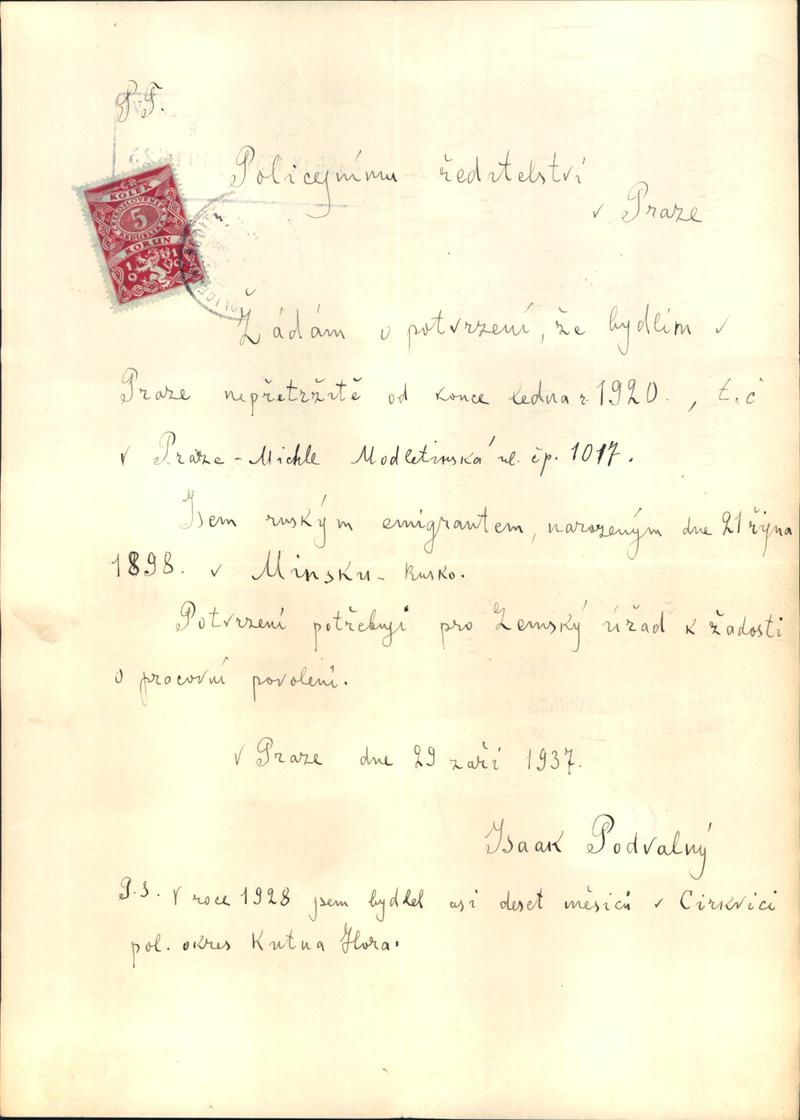 P.T.
Policejnímu ředitelství
v Praze
KOLEK
ČESKOSLOVENSKÁ
5
REPUBLIKA
KORUN
1919
POLICEJ
Žádám o potvrzení, že bydlím v
Praze nepřetržitě od konce ledna r. 1920., t. č
v Praze - Michle Modletinská ul. čp. 1017.
Jsem ruským emigrantem, narozeným dne 21 řijna
1898. v Minsku - Rusko.
Potvrzení potřebuji pro Zemský úřad k žadosti
o pracovní povolení.
v Praze dne 29 září 1937.
Isaak Podvalný
P.S. V roce 1928 jsem bydlel asi deset měsiců v Cirkvici
pol. okres Kutna Hora.